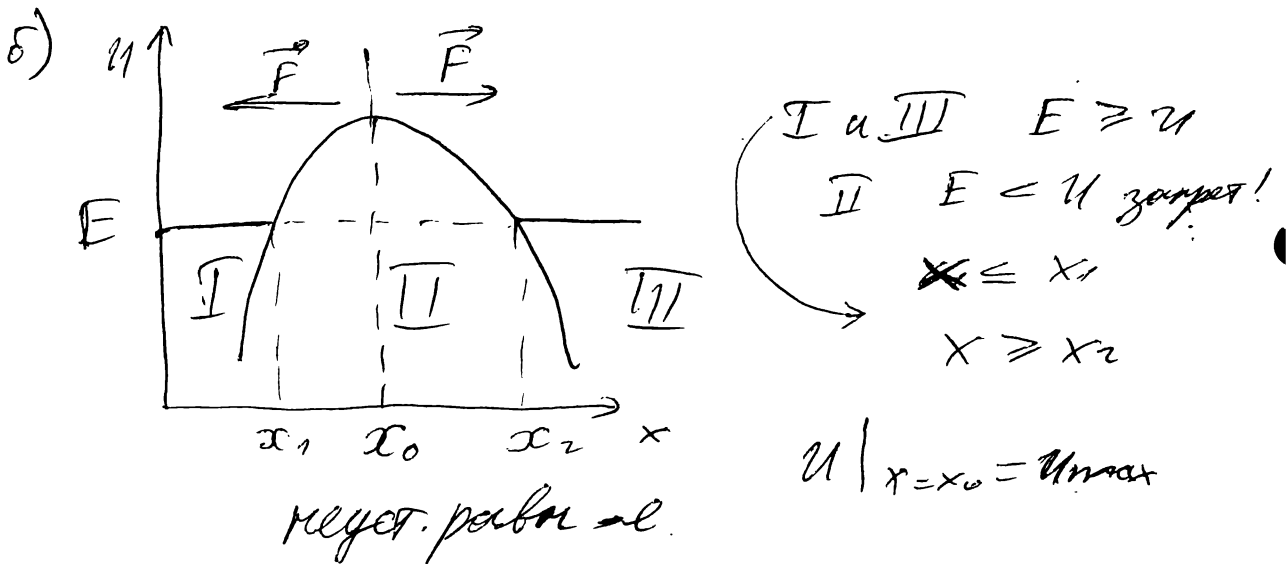 б) U
F⃗ F⃗
E
I II III
x₁ x₀ x₂ x
неуст. равн-е.
I и III E ⩾ U
II E < U запрет!
x ≤ x₁
x ⩾ x₂
U |ₓ₌ₓ₀ = Umax